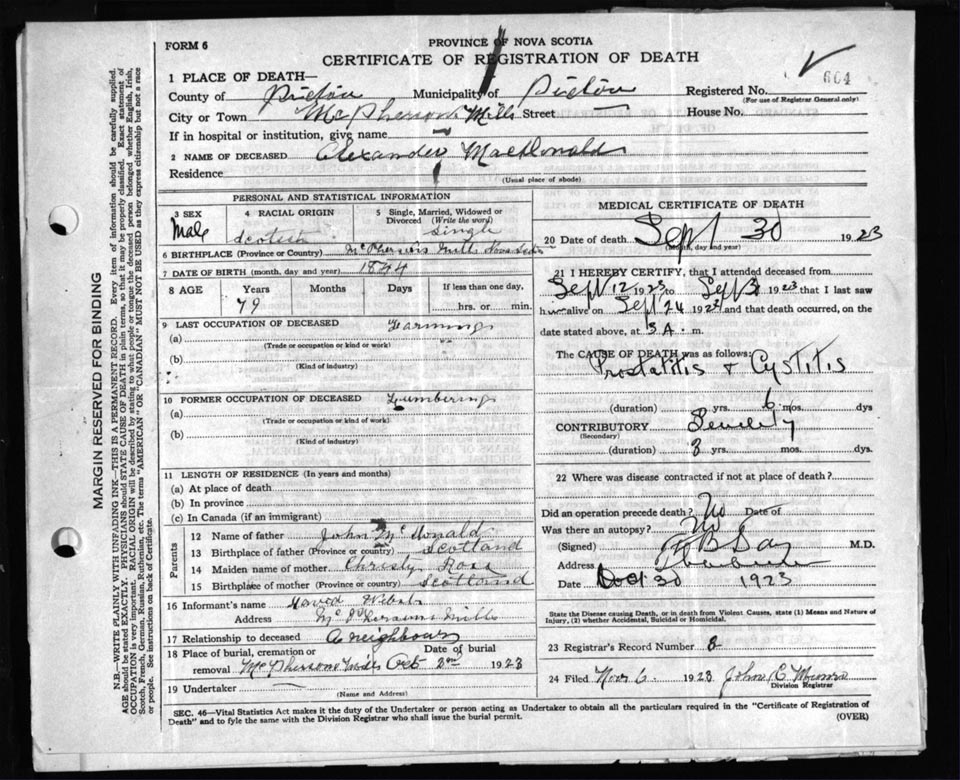 FORM 6
PROVINCE OF NOVA SCOTIA
CERTIFICATE OF REGISTRATION OF DEATH
604
1 PLACE OF DEATH—
County of Pictou Municipality of Pictou Registered No.
(For use of Registrar General only)
City or Town McPhersons Mills Street House No.
If in hospital or institution, give name
2 NAME OF DECEASED Alexander MacDonald
Residence
(Usual place of abode)
PERSONAL AND STATISTICAL INFORMATION
3 SEX 4 RACIAL ORIGIN 5 Single, Married, Widowed or Divorced (Write the word)
Male Scotch Single
6 BIRTHPLACE (Province or Country) McPhersons Mills Nova Scotia
7 DATE OF BIRTH (month, day, and year) 1844
8 AGE Years Months Days If less than one day,
79 hrs. or min.
9 LAST OCCUPATION OF DECEASED Farming
(a)
(Trade or occupation or kind or work)
(b)
(Kind of industry)
10 FORMER OCCUPATION OF DECEASED Lumbering
(a)
(Trade or occupation or kind of work)
(b)
(Kind of industry)
11 LENGTH OF RESIDENCE (In years and months)
(a) At place of death
(b) In province
(c) In Canada (if an immigrant)
Parents
12 Name of father John McDonald
13 Birthplace of father (Province or country) Scotland
14 Maiden name of mother Christy Ross
15 Birthplace of mother (Province or country) Scotland
16 Informant's name
Address McPhersons Mills
17 Relationship to deceased A neighbour
18 Place of burial, cremation or removal McPhersons Mills Date of burial Oct 2nd 1923
19 Undertaker
(Name and Address)
MEDICAL CERTIFICATE OF DEATH
20 Date of death Sept 30 1923
(Month, day and year)
21 I HEREBY CERTIFY, that I attended deceased from
Sept 12 1923 to Sept 1923 that I last saw
h im alive on Sept 24 1923 and that death occurred, on the
date stated above, at 3 A. m.
The CAUSE OF DEATH was as follows:
Prostatitis & Cystitis
(duration) yrs. 6 mos. dys
CONTRIBUTORY Senility
(Secondary)
(duration) 3 yrs. mos. dys.
22 Where was disease contracted if not at place of death?
Did an operation precede death? No Date of
Was there an autopsy? No
(Signed) M.D.
Address
Date Oct 30 1923
State the Disease causing Death, or in death from Violent Causes, state (1) Means and Nature of Injury, (2) whether Accidental, Suicidal or Homicidal.
23 Registrar's Record Number 8
24 Filed Nov 6 1923 John C Munro
Division Registrar
SEC. 46—Vital Statistics Act makes it the duty of the Undertaker or person acting as Undertaker to obtain all the particulars required in the "Certificate of Registration of
Death" and to fyle the same with the Division Registrar who shall issue the burial permit. (OVER)
MARGIN RESERVED FOR BINDING
N.B.—WRITE PLAINLY WITH UNFADING INK—THIS IS A PERMANENT RECORD. Every item of information should be carefully supplied.
AGE should be stated EXACTLY. PHYSICIANS should STATE CAUSE OF DEATH in plain terms, so that it may be properly classified. Exact statement of
OCCUPATION is very important. RACIAL ORIGIN will be described by stating to what people or tongue the deceased person belonged whether English, Irish,
Scotch, French, German, Russian, Ruthenian, etc. The terms "AMERICAN" OR "CANADIAN" MUST NOT BE USED as they express citizenship but not a race
or people. See instructions on back of Certificate.